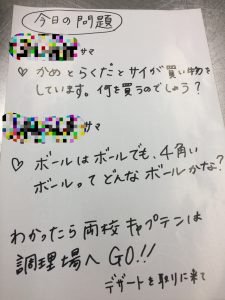 今日の問題
サマ
♡ かめとらくだとサイが買い物を
しています。何を買うのでしょう？
サマ
♡ ボールはボールでも、4角い
ボールってどんなボールかな？
わかったら両校キャプテンは
調理場へGO!!
デザートを取りに来て